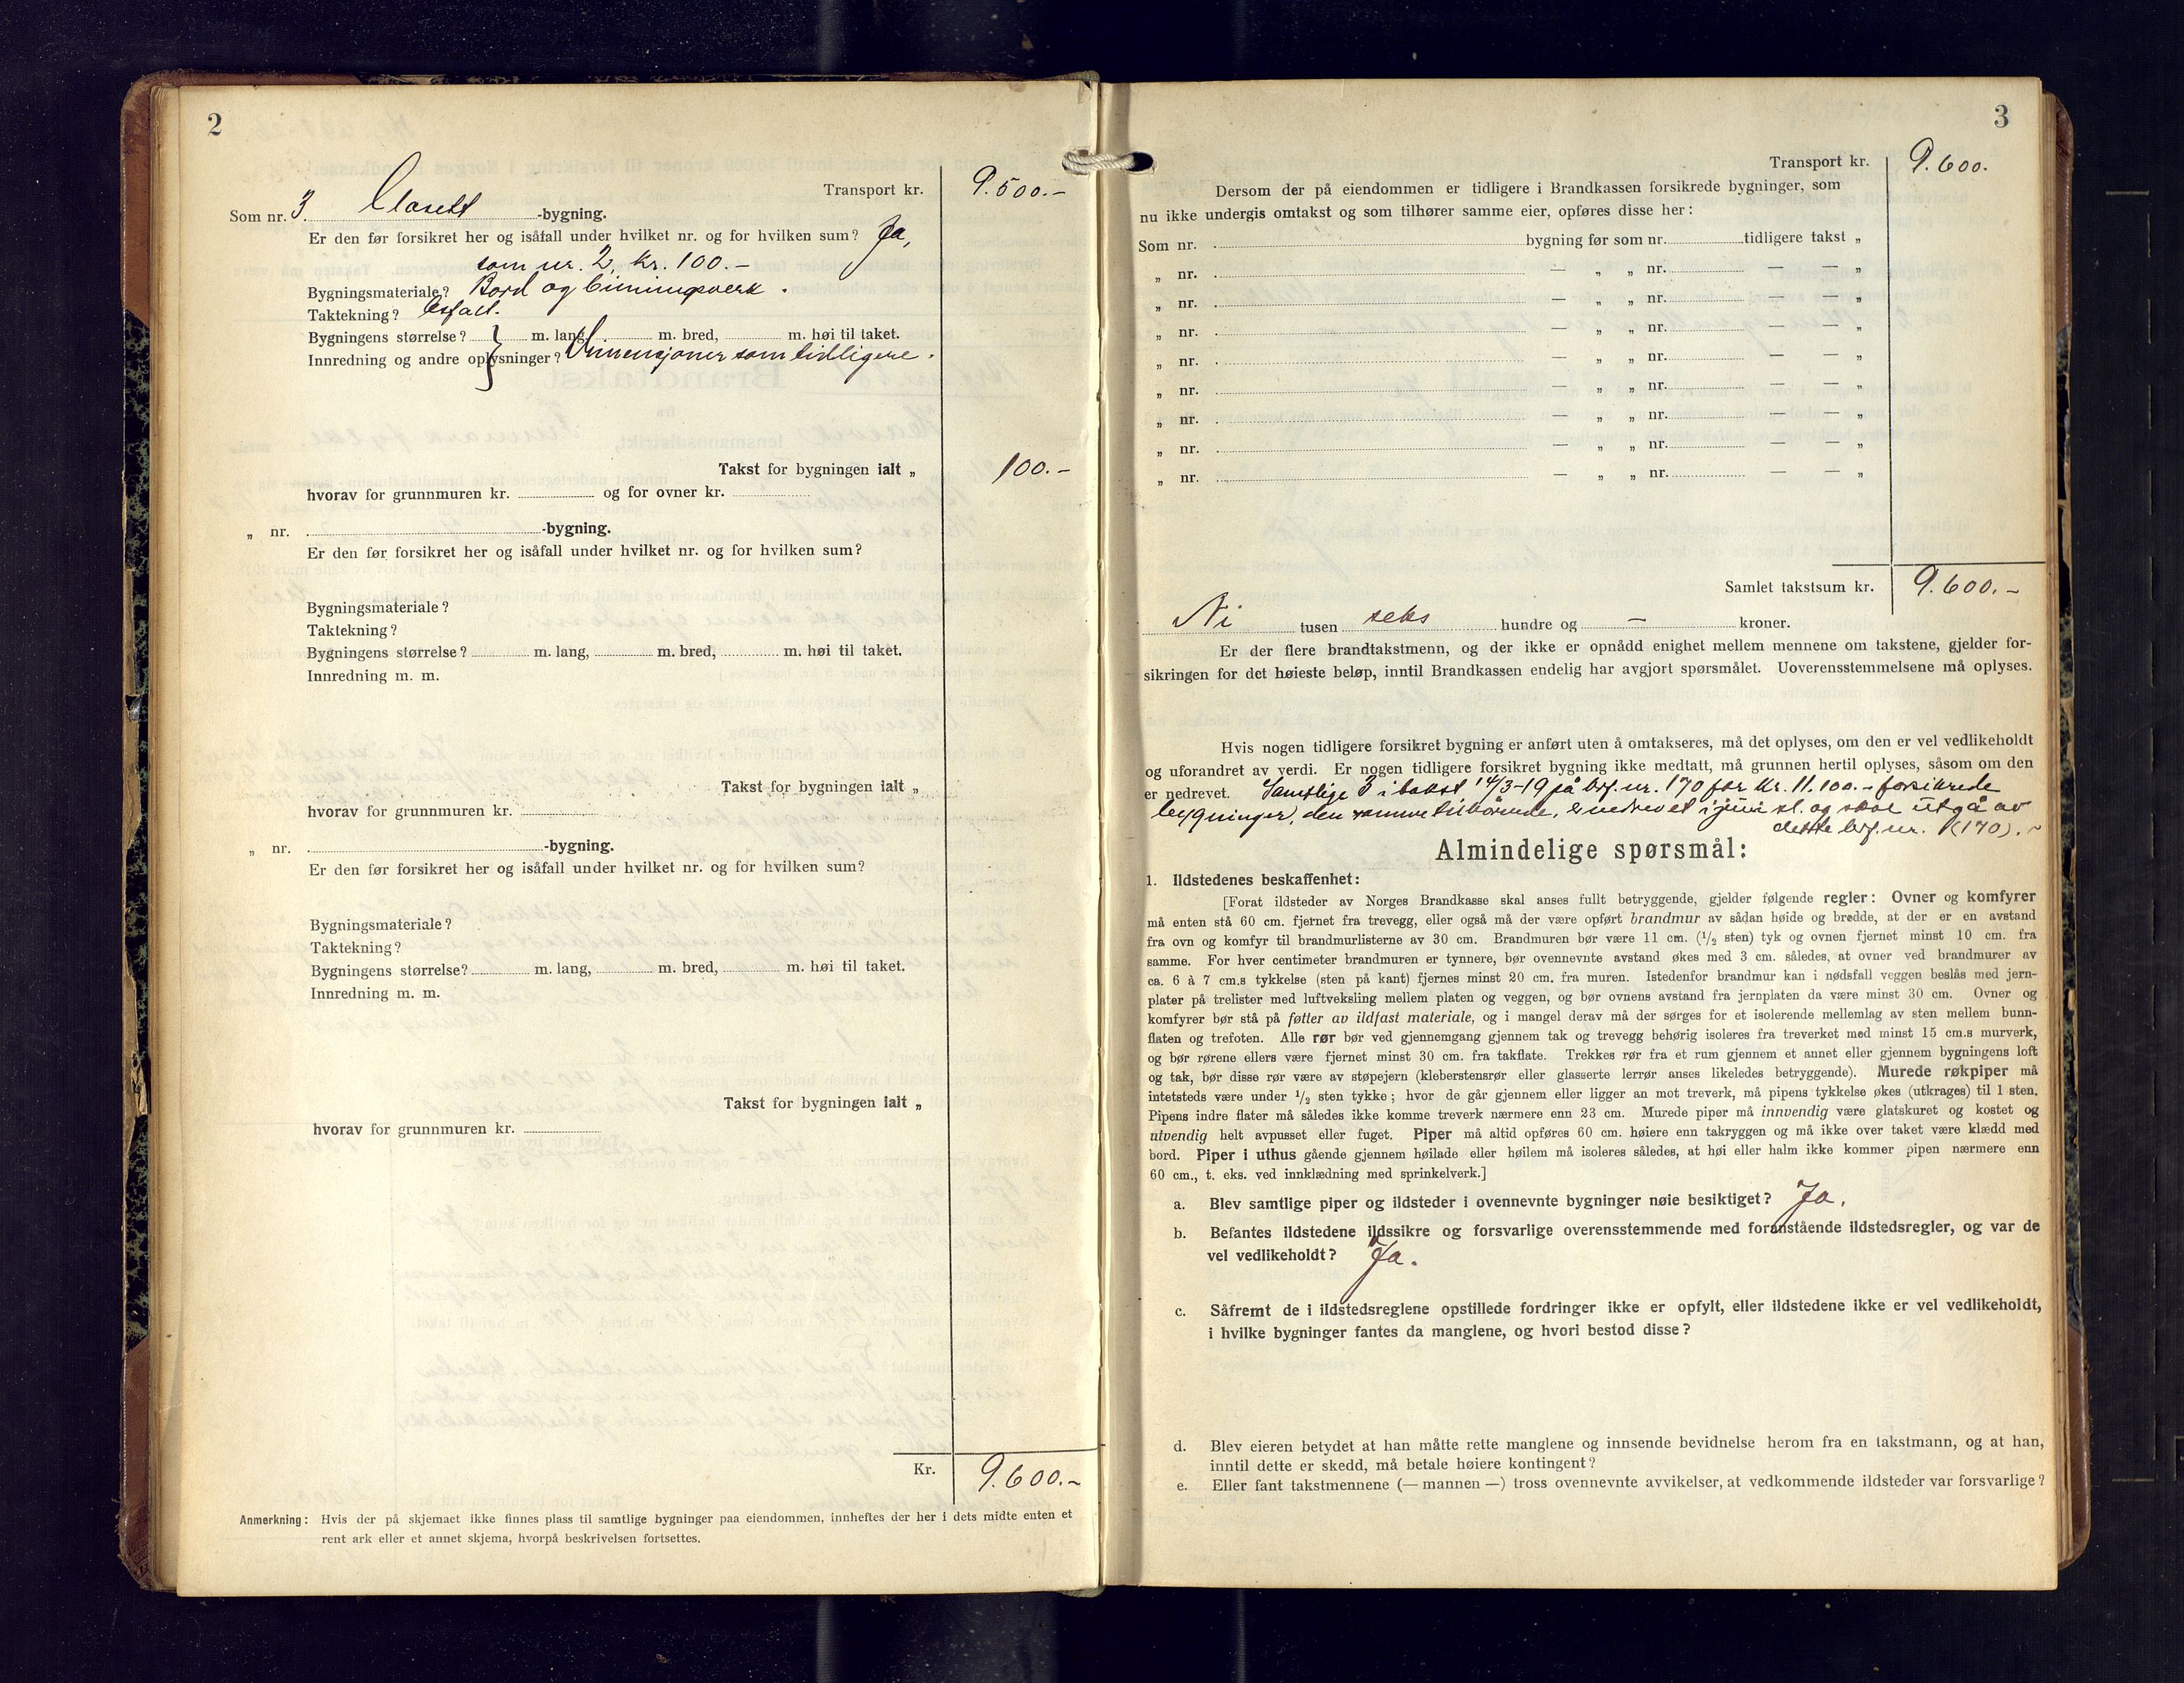 2
Transport kr. 9.500.-
Som nr. 3. Closett -bygning.
Er den før forsikret her og isåfall under hvilket nr. og for hvilken sum? Ja,
som nr. 2, kr. 100.-
Bygningsmateriale? Bord og binningsverk.
Taktekning? Asfalt.
Bygningens størrelse? m. lang, m. bred, m. høi til taket.
Innredning og andre oplysninger? Dimensjoner som tidligere.
Takst for bygningen ialt „ 100.-
hvorav for grunnmuren kr. og for ovner kr.
„ nr. -bygning.
Er den før forsikret her og isåfall under hvilket nr. og for hvilken sum?
Bygningsmateriale?
Taktekning?
Bygningens størrelse? m. lang, m. bred, m. høi til taket.
Innredning m. m.
Takst for bygningen ialt „
hvorav for grunnmuren kr.
„ nr. -bygning.
Er den før forsikret her og isåfall under hvilket nr. og for hvilken sum?
Bygningsmateriale?
Taktekning?
Bygningens størrelse? m. lang, m. bred, m. høi til taket.
Innredning m. m.
Takst for bygningen ialt „
hvorav for grunnmuren kr.
Kr. 9.600.-
Anmerkning: Hvis der på skjemaet ikke finnes plass til samtlige bygninger paa eiendommen, innheftes der her i dets midte enten et
rent ark eller et annet skjema, hvorpå beskrivelsen fortsettes.
3
Transport kr. 9.600.
Dersom der på eiendommen er tidligere i Brandkassen forsikrede bygninger, som
nu ikke undergis omtakst og som tilhører samme eier, opføres disse her:
Som nr. bygning før som nr. tidligere takst „
„ nr. — „ „ nr. — — „
„ nr. — „ „ nr. — — „
„ nr. — „ „ nr. — — „
„ nr. — „ „ nr. — — „
„ nr. — „ „ nr. — — „
„ nr. — „ „ nr. — — „
„ nr. — „ „ nr. — — „
„ nr. — „ „ nr. — — „
Samlet takstsum kr. 9.600.-
Ni tusen seks hundre og — kroner.
Er der flere brandtakstmenn, og der ikke er opnådd enighet mellem mennene om takstene, gjelder for-
sikringen for det høieste beløp, inntil Brandkassen endelig har avgjort spørsmålet. Uoverensstemmelsene må oplyses.
Hvis nogen tidligere forsikret bygning er anført uten å omtakseres, må det oplyses, om den er vel vedlikeholdt
og uforandret av verdi. Er nogen tidligere forsikret bygning ikke medtatt, må grunnen hertil oplyses, såsom om den
er nedrevet. Samtlige 3 i takst 14/3-19 på brf. nr. 170 for kr. 11.100.- forsikrede
bygninger, den samme tilhørende, er nedrevet i juni sl. og skal utgå av
dette brf. nr. (170).-
Almindelige spørsmål:
1. Ildstedenes beskaffenhet:
[Forat ildsteder av Norges Brandkasse skal anses fullt betryggende, gjelder følgende regler: Ovner og komfyrer
må enten stå 60 cm. fjernet fra trevegg, eller også må der være opført brandmur av sådan høide og bredde, at der er en avstand
fra ovn og komfyr til brandmurlisterne av 30 cm. Brandmuren bør være 11 cm. (½ sten) tyk og ovnen fjernet minst 10 cm. fra
samme. For hver centimeter brandmuren er tynnere, bør ovennevnte avstand økes med 3 cm. således, at ovner ved brandmurer av
ca. 6 à 7 cm.s tykkelse (sten på kant) fjernes minst 20 cm. fra muren. Istedenfor brandmur kan i nødsfall veggen beslås med jern-
plater på trelister med luftveksling mellem platen og veggen, og bør ovnens avstand fra jernplaten da være minst 30 cm. Ovner og
komfyrer bør stå på føtter av ildfast materiale, og i mangel derav må der sørges for et isolerende mellemlag av sten mellem bunn-
flaten og trefoten. Alle rør bør ved gjennemgang gjennem tak og trevegg behørig isoleres fra treverket med minst 15 cm.s murverk,
og bør rørene ellers være fjernet minst 30 cm. fra takflate. Trekkes rør fra et rum gjennem et annet eller gjennem bygningens loft
og tak, bør disse rør være av støpejern (kleberstensrør eller glasserte lerrør anses likeledes betryggende). Murede røkpiper må
intetsteds være under ½ sten tykke; hvor de går gjennem eller ligger an mot treverk, må pipens tykkelse økes (utkrages) til 1 sten.
Pipens indre flater må således ikke komme treverk nærmere enn 23 cm. Murede piper må innvendig være glatskuret og kostet og
utvendig helt avpusset eller fuget. Piper må altid opføres 60 cm. høiere enn takryggen og må ikke over taket være klædd med
bord. Piper i uthus gående gjennem høilade eller høilem må isoleres således, at høi eller halm ikke kommer pipen nærmere enn
60 cm., t. eks. ved innklædning med sprinkelverk.]
a. Blev samtlige piper og ildsteder i ovennevnte bygninger nøie besiktiget? Ja.
b. Befantes ildstedene ildssikre og forsvarlige overensstemmende med foranstående ildstedsregler, og var de
vel vedlikeholdt? Ja.
c. Såfremt de i ildstedsreglene opstillede fordringer ikke er opfylt, eller ildstedene ikke er vel vedlikeholdt,
i hvilke bygninger fantes da manglene, og hvori bestod disse?
d. Blev eieren betydet at han måtte rette manglene og innsende bevidnelse herom fra en takstmann, og at han,
inntil dette er skedd, må betale høiere kontingent?
e. Eller fant takstmennene (— mannen —) tross ovennevnte avvikelser, at vedkommende ildsteder var forsvarlige?